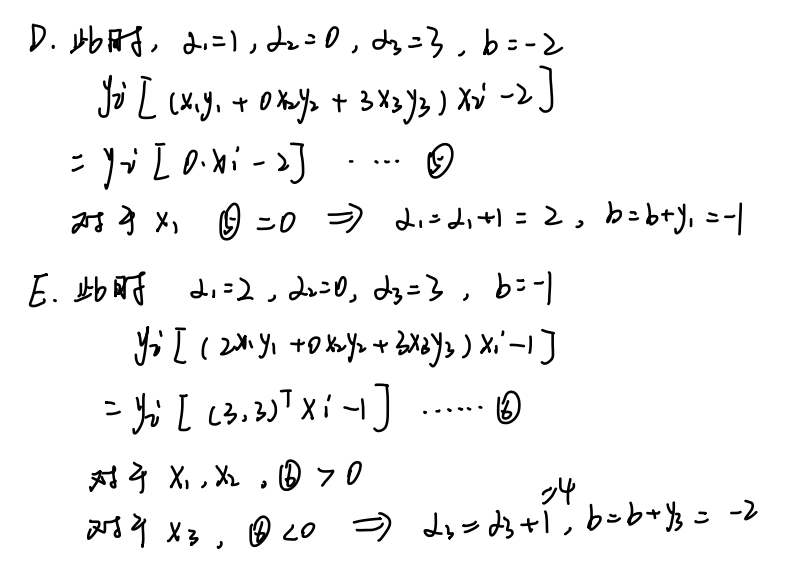 D. 此时, α₁=1, α₂=0, α₃=3, b=-2
yᵢ[(x₁y₁ + 0x₂y₂ + 3x₃y₃)xᵢ -2]
= yᵢ[0·xᵢ -2] ····⑤
对于 x₁ ⑤=0 ⇒ α₁=α₁+1=2, b=b+y₁=-1
E. 此时 α₁=2, α₂=0, α₃=3, b=-1
yᵢ[(2x₁y₁ +0x₂y₂+3x₃y₃)xᵢ-1]
= yᵢ[(3,3)ᵀxᵢ-1] ······⑥
对于 x₁,x₂, ⑥>0
对于 x₃, ⑥<0 ⇒ α₃=α₃+1=4, b=b+y₃= -2